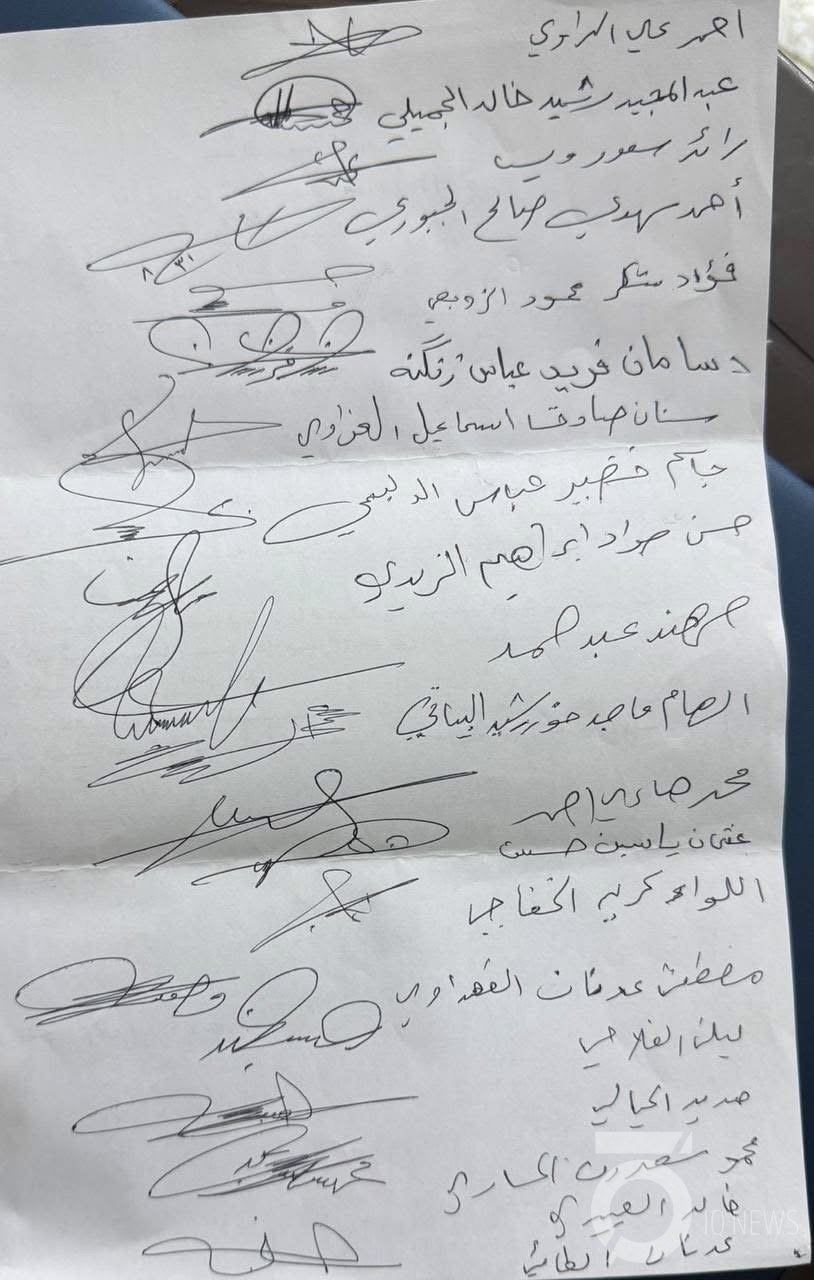 احمد علي الراوي
عبد المجيد رشيد خالد الجميلي
رائد سعود ويس
أحمد مهدي صالح الجبوري
٨/٣١
فؤاد شكر محمود الزوبعي
د سامان فريد عباس زنگنه
سنان صادق اسماعيل العزاوي
جاسم خضير عباس الدليمي
حسن جواد ابراهيم الزيدي
مهند عبد حمد
الهام ماجد خورشيد البياتي
محمد علي احمد
عثمان ياسين حسين
اللواء كريم الخفاجي
مصطفى عدنان الفهداوي
ليث الفلاحي
حديد الحيالي
محمود سعدون
خالد العبيدي
عدنان الطائي
IQ NEWS